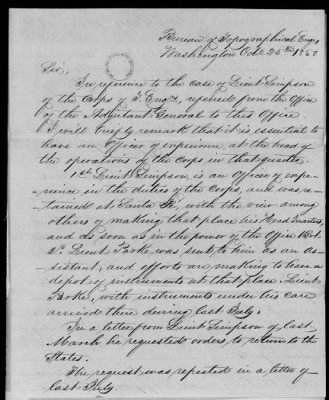 Bureau of Topographical Engs.
Washington Oct 25th 1850
Sir,
In reference to the case of Lieut Simpson
of the Corps of T. Engrs, referred from the Office
of the Adjutant General to this Office.
I will briefly remark that it is essential to
have an Officer of experience, at the head of
the operations of the Corps in that quarter.
1st Lieut Simpson, is an Officer of expe-
rience in the duties of the Corps, and was re-
tained at Santa Fé, with the view among
others of making that place his Head Quarters,
and as soon as in the power of the Office
Lieut Parke, was sent to him as an as-
sistant, and efforts are making to have a
depot of instruments at that place. Lieut
Parke, with instruments under his care
arrived there during last July.
In a letter from Lieut Simpson of last
March he requested orders, to return to the
States.
The request was repeated in a letter of
last July.